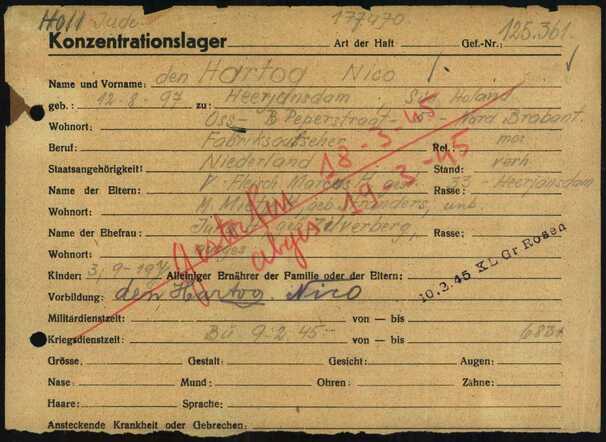 Holl Jude 177470
Konzentrationslager Art der Haft Gef.-Nr.: 125.361
Name und Vorname: den Hartog Nico
geb.: 12.8.97 zu: Heerjansdam, Süd Holand
Wohnort: Oss - B Peperstraat - Nord Brabant.
Beruf: Fabriksaufseher Rel.: mos
Staatsangehörigkeit: Niederland Stand: verh
Name der Eltern: V. Fleisch. Marcus H Rasse: Heerjansdam
Wohnort: M. geb. unb.
Name der Ehefrau: geb. Zilverberg, Rasse:
Wohnort
Kinder: 3, 9-19 J. Alleiniger Ernährer der Familie oder der Eltern:
Vorbildung: den Hartog Nico
Militärdienstzeit: von — bis
Kriegsdienstzeit: Bu 9.2.45 von — bis
Grösse: Gestalt: Gesicht: Augen:
Nase: Mund: Ohren: Zähne:
Haare: Sprache:
Ansteckende Krankheit oder Gebrechen:
gestorben 18-3-45
abges 19.3-45
10.2.45 KL Gr Rosen